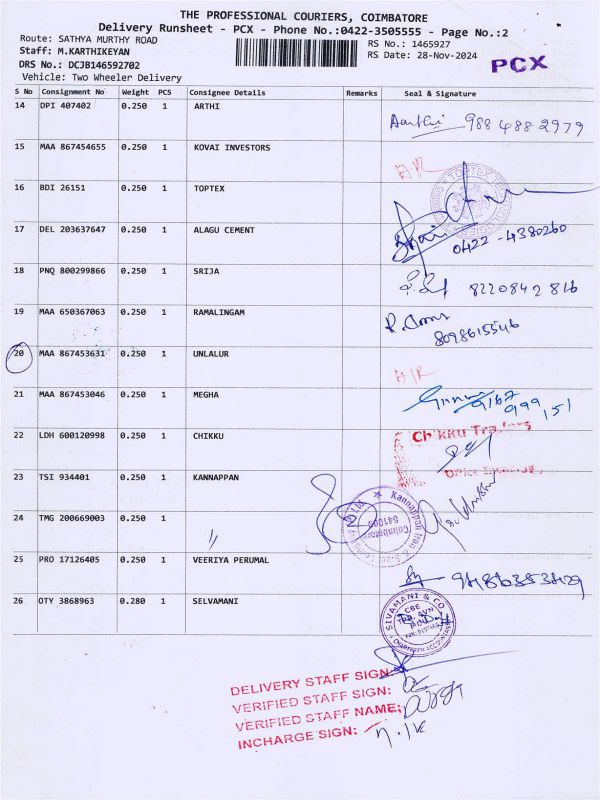 THE PROFESSIONAL COURIERS, COIMBATORE
Delivery Runsheet - PCX - Phone No.:0422-3505555 - Page No.:2
Route: SATHYA MURTHY ROAD RS No.: 1465927
Staff: M.KARTHIKEYAN RS Date: 28-Nov-2024 PCX
DRS No.: DCJB146592702
Vehicle: Two Wheeler Delivery
S No Consignment No Weight PCS Consignee Details Remarks Seal & Signature
14 DPI 407402 0.250 1 ARTHI
Aarthi 988 488 2979
15 MAA 867454655 0.250 1 KOVAI INVESTORS
A/R
16 BDI 26151 0.250 1 TOPTEX
17 DEL 203637647 0.250 1 ALAGU CEMENT
0422 - 4380260
18 PNQ 800299866 0.250 1 SRIJA
8220842 816
19 MAA 650367063 0.250 1 RAMALINGAM
8098615546
20 MAA 867453631 0.250 1 UNLALUR
A/R
21 MAA 867453046 0.250 1 MEGHA
22 LDH 600120998 0.250 1 CHIKKU
Chikku
23 TSI 934401 0.250 1 KANNAPPAN
Kannappan Iron &
Coimbatore
24 TMG 200669003 0.250 1 "
25 PRO 17126405 0.250 1 VEERIYA PERUMAL
9486353429
26 OTY 3868963 0.280 1 SELVAMANI
SIVAMANI & CO.
CBE
DELIVERY STAFF SIGN:
VERIFIED STAFF SIGN:
VERIFIED STAFF NAME:
INCHARGE SIGN: